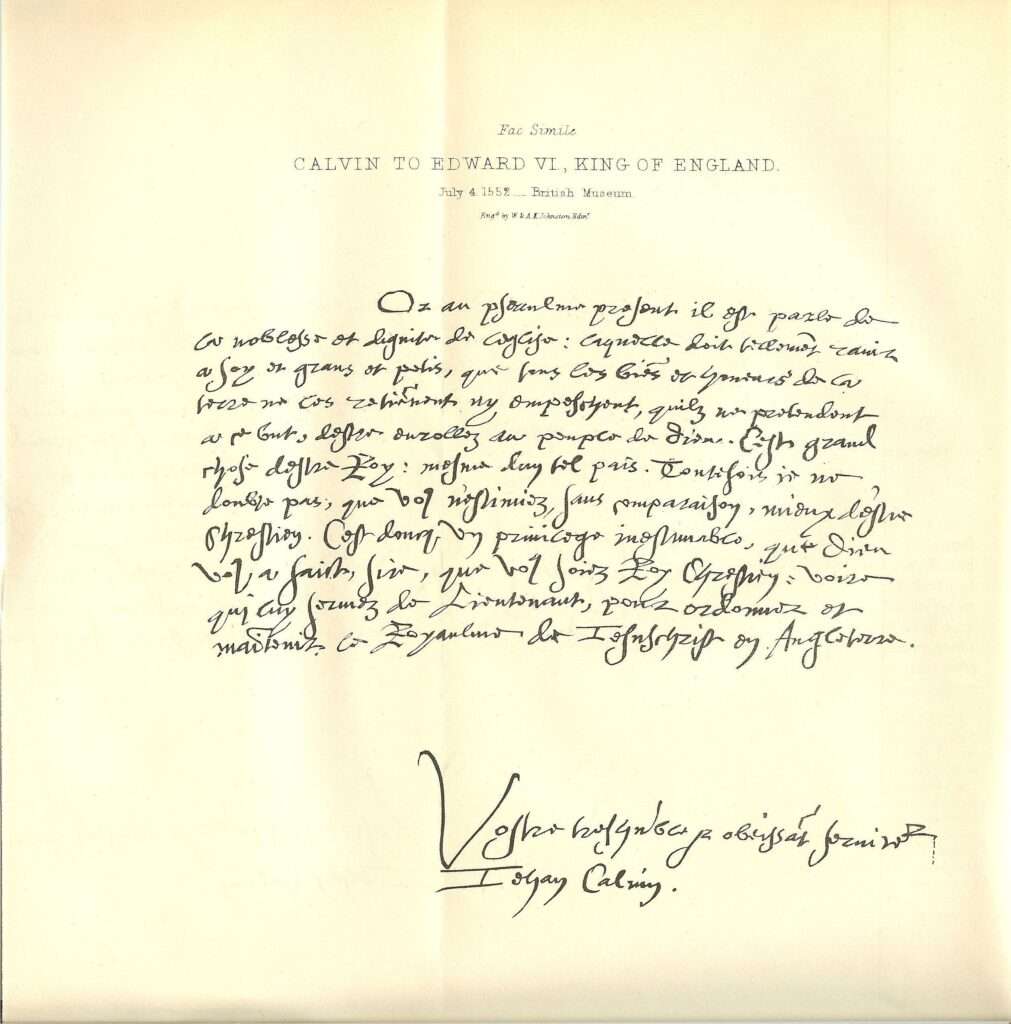 Fac Simile
CALVIN TO EDWARD VI., KING OF ENGLAND.
July 4 1552 __ British Museum.
Engd by W. & A. K. Johnston, Edinr
Or au pseaulme present il est parle de
la noblesse et dignite de leglise: laquelle doit tellemēt ravir
a soy et grans et petis, que tous les biēs et honeurs de la
terre ne les retiēnent ny empeschent, quilz ne pretendent
a ce but, destre enrollez au peuple de dieu. Cest grand
chose destre Roy: mesme dun tel pais. Toutefois ie ne
doubte pas, que vo9 nestimiez, sans comparaison, mieux destre
Chrestien. Cest doncq, un privilege inestimable, que dieu
vo9 a faict, sire, que vo9 soiez Roy Chrestien: voire
qui luy servez de Lieutenant, pour ordonner et
maītenir le Royaulme de Iesuschrist en Angleterre.
Vostre treshūble et obeissāt serviter
Iehan Calvin.